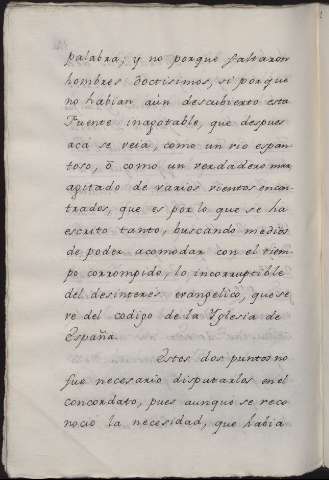 palabra; y no porque faltaron
hombres doctisimos, si porque
no habian aun descubierto esta
Fuente inagotable, que despues
acá se veia, como un rio espan-
toso, ó como un verdadero mar
agitado de varios vientos encon-
trados, que es por lo que se ha
escrito tanto, buscando medios
de poder acomodar con el tiem-
po corrompido, lo incorruptible
del desinteres evangelico, que se
ve del codigo de la Yglesia de
España.
Estos dos puntos no
fue necesario disputarlos en el
concordato, pues aunque se reco-
nocio la necesidad, que habia